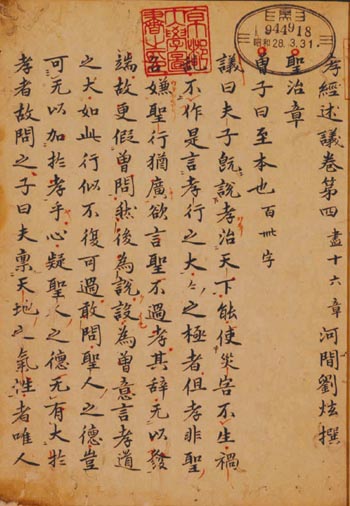 孝經述議卷第四 盡十六章 河間劉炫撰
聖治章
曽子曰至本也 百卌字
議曰夫子既説孝治天下能使災害不生禍
不作是言孝行之大々之極者但孝非聖
嫌聖行猶廣欲言聖不過孝其辞无以發
端故更假曽問然後為説設為曽意言孝道
之大如此行似不復可過敢問聖人之德豈
可无以加於孝乎心疑聖人之德无有大於
孝者故問之子曰夫禀天地之氣性者唯人
京都大學圖書之
944918
昭和28.3.31